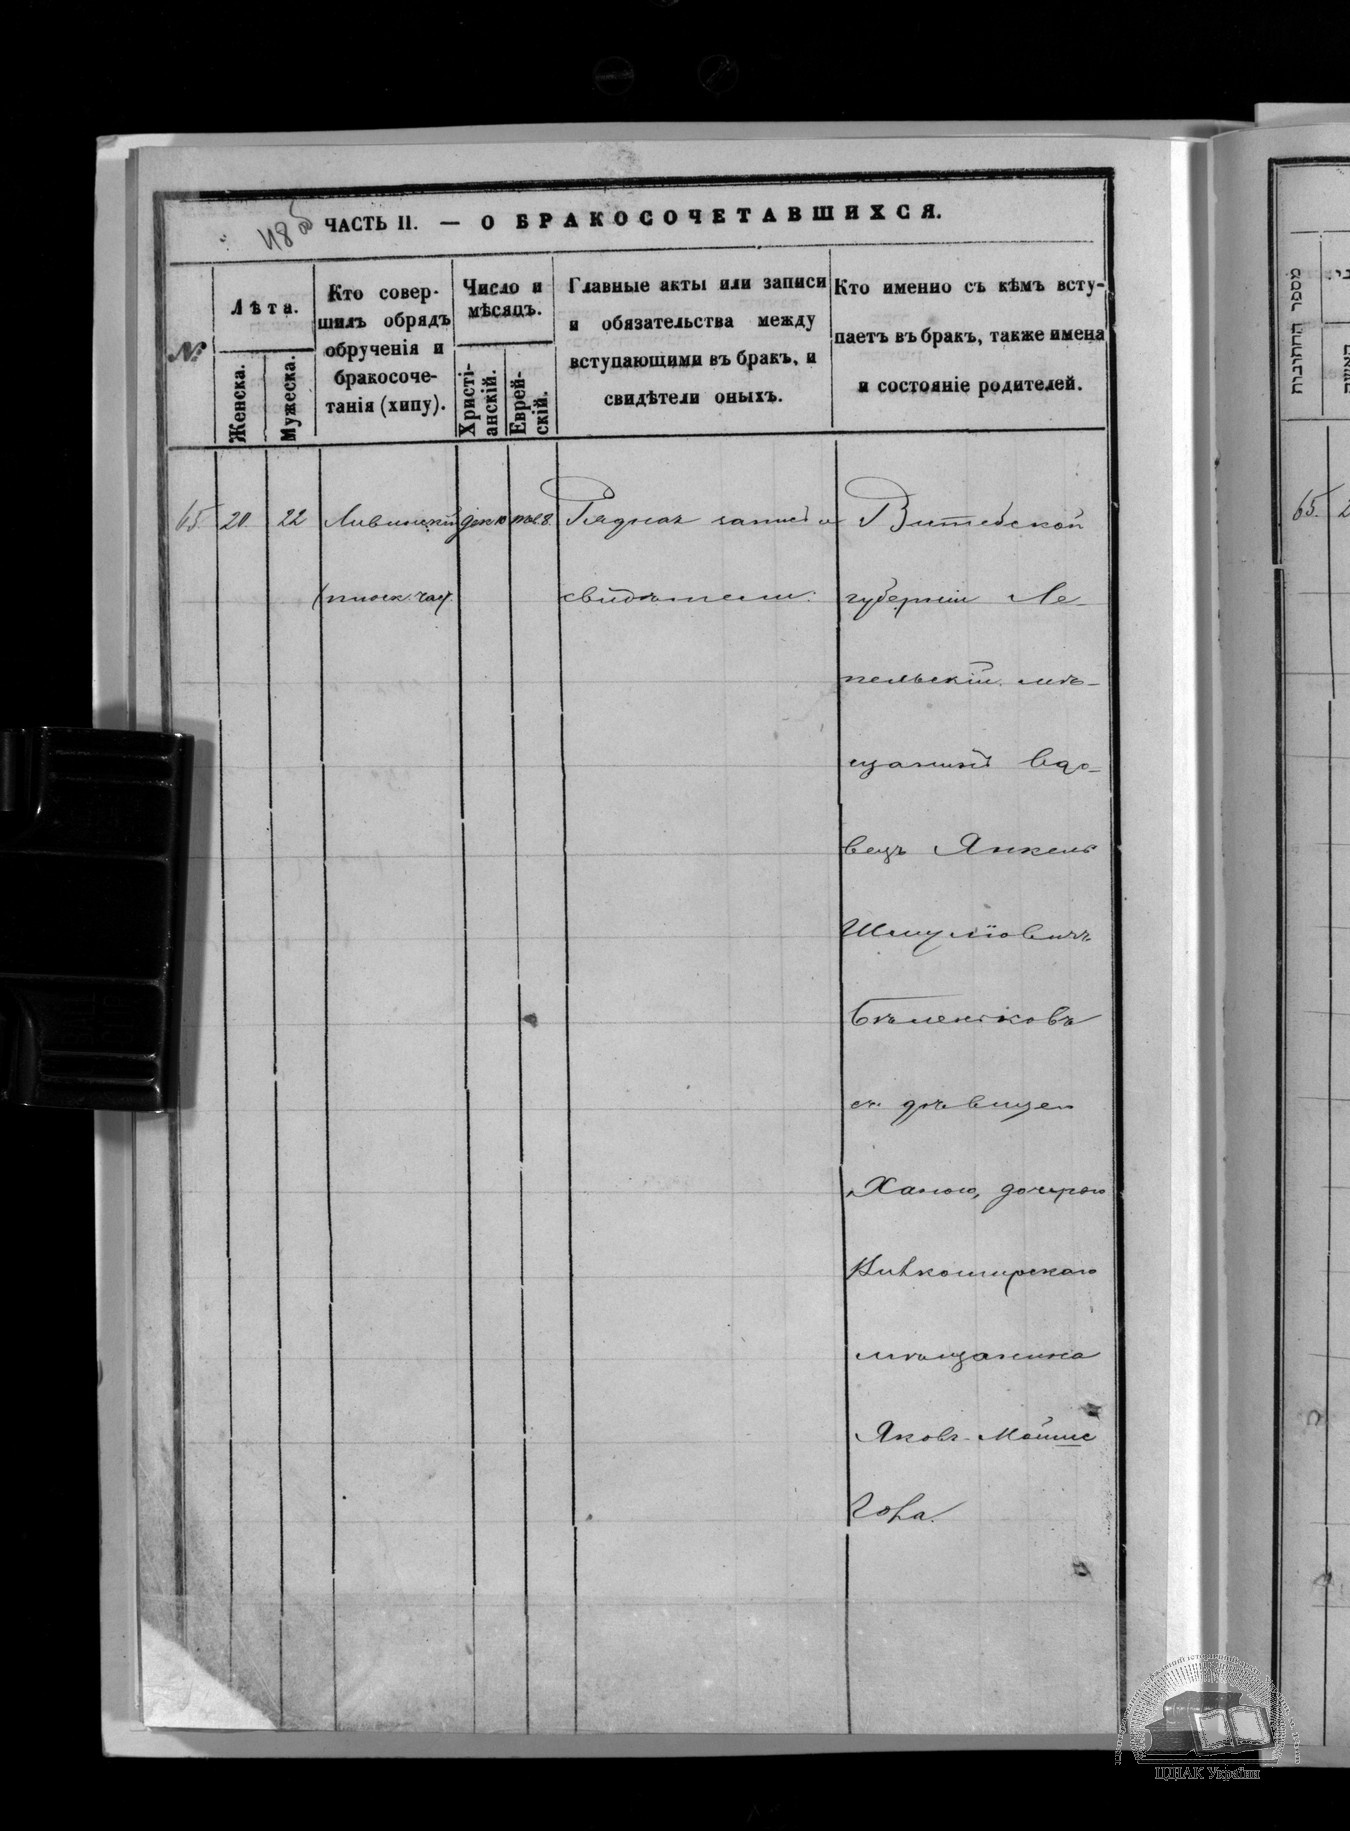 48 об
ЧАСТЬ II. — О БРАКОСОЧЕТАВШИХСЯ.
№
Лѣта.
Женска.
Мужеска.
Кто совер-
шилъ обрядъ
обрученія и
бракосоче-
танія (хипу).
Число и
мѣсяцъ.
Христі-
анскій.
Еврей-
скій.
Главные акты или записи
и обязательства между
вступающими въ бракъ, и
свидѣтели оныхъ.
Кто именно съ кѣмъ всту-
паетъ въ бракъ, также имена
и состояніе родителей.
65 20 22
дек 10
8.
Рядная запись и
свидѣтели.
Витебской
губерніи Ле-
пельскій мѣ-
щанинъ вдо-
вецъ Янкель
Шмуйловичъ
Бѣленковъ
съ дѣвицею
Ханою, дочерью
мѣщанина
Яковъ-Мойше
מספר החתונות
65.
ЦДІАК України